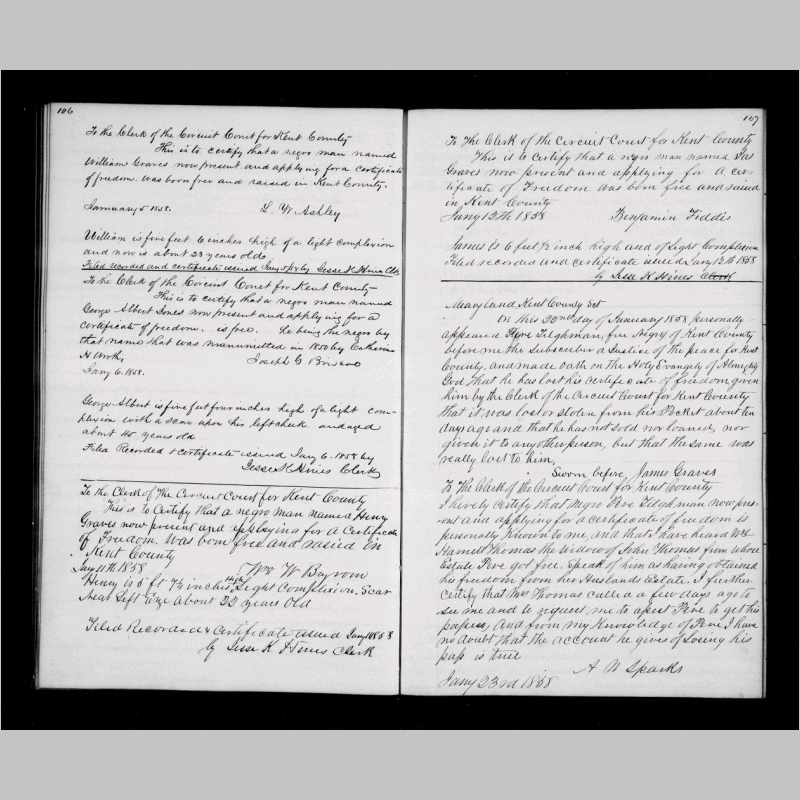 106
To the Clerk of the Circuit Court for Kent County
This is to certify that a negro man named
William Graves now present and applying for a certificate
of freedom. Was born free and raised in Kent County.
January 5 1858.     L. W Ashley
William is five feet 6 inches high of a light complexion
and now is about 23 years old
Filed recorded and certificate issued Jany 5 1858 by Jesse K Hines Clk
To the Clerk of the Circuit Court for Kent County
This is to certify that a negro man named
George Albert Jones now present and applying for a
certificate of freedom. is free. he being the negro by
that name that was manumitted in 1850 by Catherine
H Worth,
Joseph G
Jany 6. 1858.
George Albert is five feet four inches high of a light com-
plexion with a scar upon his left cheek and aged
about 45 years old
Filed Recorded & certificate issued Jany 6. 1858 by
Jesse K Hines Clerk
To the Clerk of The Circuit Court for Kent County
This is to Certify that a negro man named Henry
Graves now present and applying for a Certificate
of Freedom. Was born free and raised in
Kent County
Jany 11th 1858
Wm W Bayrom
Henry is 5 ft 7½ inches high Light Complexion. Scar
near Left Eye About 22 years Old
Filed Recorded & Certificate issued Jany 1858
by Jesse K Hines Clerk
107
To The Clerk of the Circuit Court for Kent County
This is to Certify that a negro man named Jas
Graves now present and applying for a Cer-
tificate of Freedom was born free and raised
in Kent County
Jany 12th 1858     Benjamin Fiddis
James is 6 feet ½ inch high and of Light Complexion
Filed recorded and Certificate issued Jany 12th 1858
by Jesse K Hines Clerk
Maryland Kent County Sct
On this 22nd day of January 1858 personally
appeared Pere Tilghman, free Negro of Kent County
before me the Subscriber a Justice of the peace for Kent
County, and made oath on the Holy Evangely of Almighty
God that he has lost his Certificate of freedom given
him by the Clerk of the Circuit Court for Kent County
that it was lost or stolen from his Pocket about ten
days ago and that he has not sold nor loaned, nor
given it to any other person, but that the same was
really lost to him,
Sworn before, James Graves
To The Clerk of the Circuit Court for Kent County
I hereby Certify that Negro Pere Tilghman now pre-
sent and applying for a certificate of freedom is
personally known to me, and that I have heard Mrs
Harriett Thomas the Widow of John Thomas from whose
Estate Pere got free, speak of him as having obtained
his freedom from her Husbands Estate. I further
certify that Mrs Thomas called a few days ago to
see me and to request me to assist Pere to get his
papers, and from my knowledge of Pere I have
no doubt that the account he gives of Losing his
pass is true
A W Sparks
Jany 23rd 1858